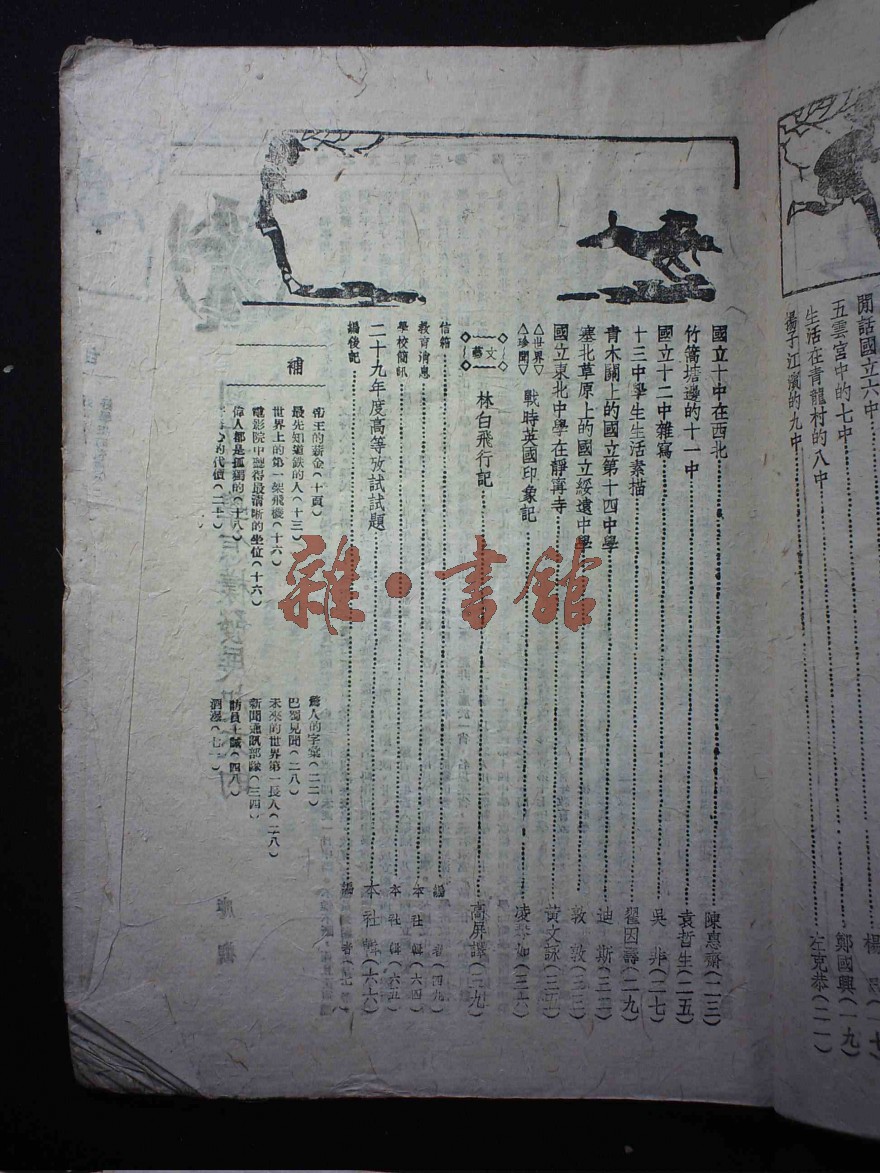 閒話國立六中 楊
五雲宮中的七中 鄭國興(一九)
生活在青龍村的八中
揚子江濱的九中 左克恭(二一)
國立十中在西北 陳惠齋(二三)
竹篙塘邊的十一中 袁哲生(二五)
國立十二中雜寫 吳非(二七)
十三中學生生活素描 翟因壽(二九)
青木關上的國立第十四中學 迪斯(三二)
塞北草原上的國立綏遠中學 敦敦(三三)
國立東北中學在靜寧寺 黃文詠
△世界▽
△珍聞▽
戰時英國印象記
文藝
林白飛行記 高屏譯
信箱 編者(四九)
教育消息 本社輯(六四)
學校簡訊 本社輯(六五)
二十九年度高等攷試試題 本社輯(六六)
編後記 編者
補
帝王的薪金(十頁)
最先知道鉄的人(十三)
世界上的第一架飛機(十六)
電影院中聽得最清晰的坐位(十六)
偉人都是孤獨的(十八)
的代價(二十)
驚人的字彙(二二)
巴蜀見聞(二八)
未來的世界第一長人(二八)
新聞通訊部隊(三四)
(四八)
(七一)
雜·書館